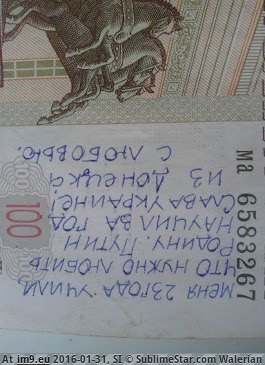 меня 23 года учили
что нужно любить
Родину. Путин
научил за год.
Слава Украине!
из Донецка
с любовью.
100
Ма 6583267
At im9.eu 2016-01-31, SI © SublimeStar.com Walerian